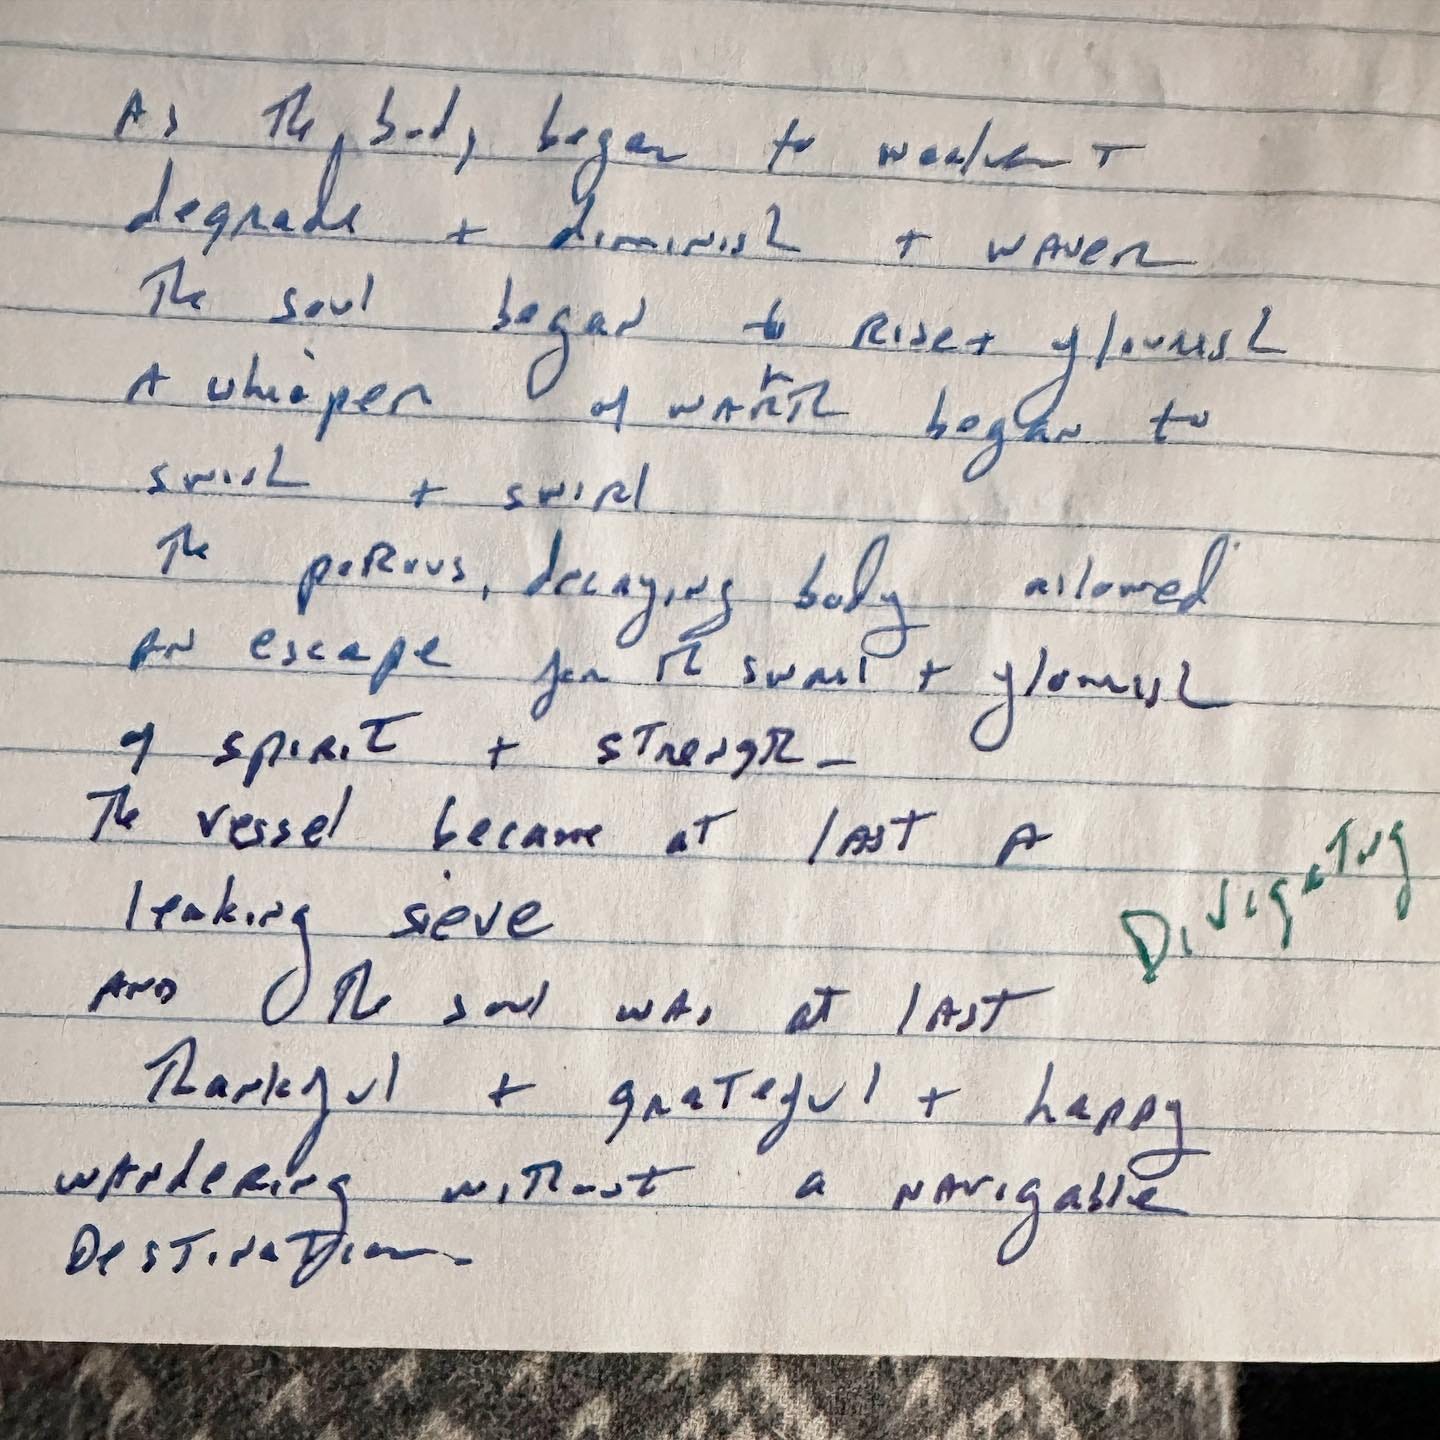 As The body began to weaken +
degrade + diminish + waver
The soul began to rise + flourish
A whisper of warmth began to
swish + swirl
The porous, decaying body allowed
an escape for the swirl + flourish
of spirit + strength -
The vessel became at last a
leaking sieve
Divigating
And The soul was at last
Thankful + grateful + happy
wandering without a navigable
Destination -